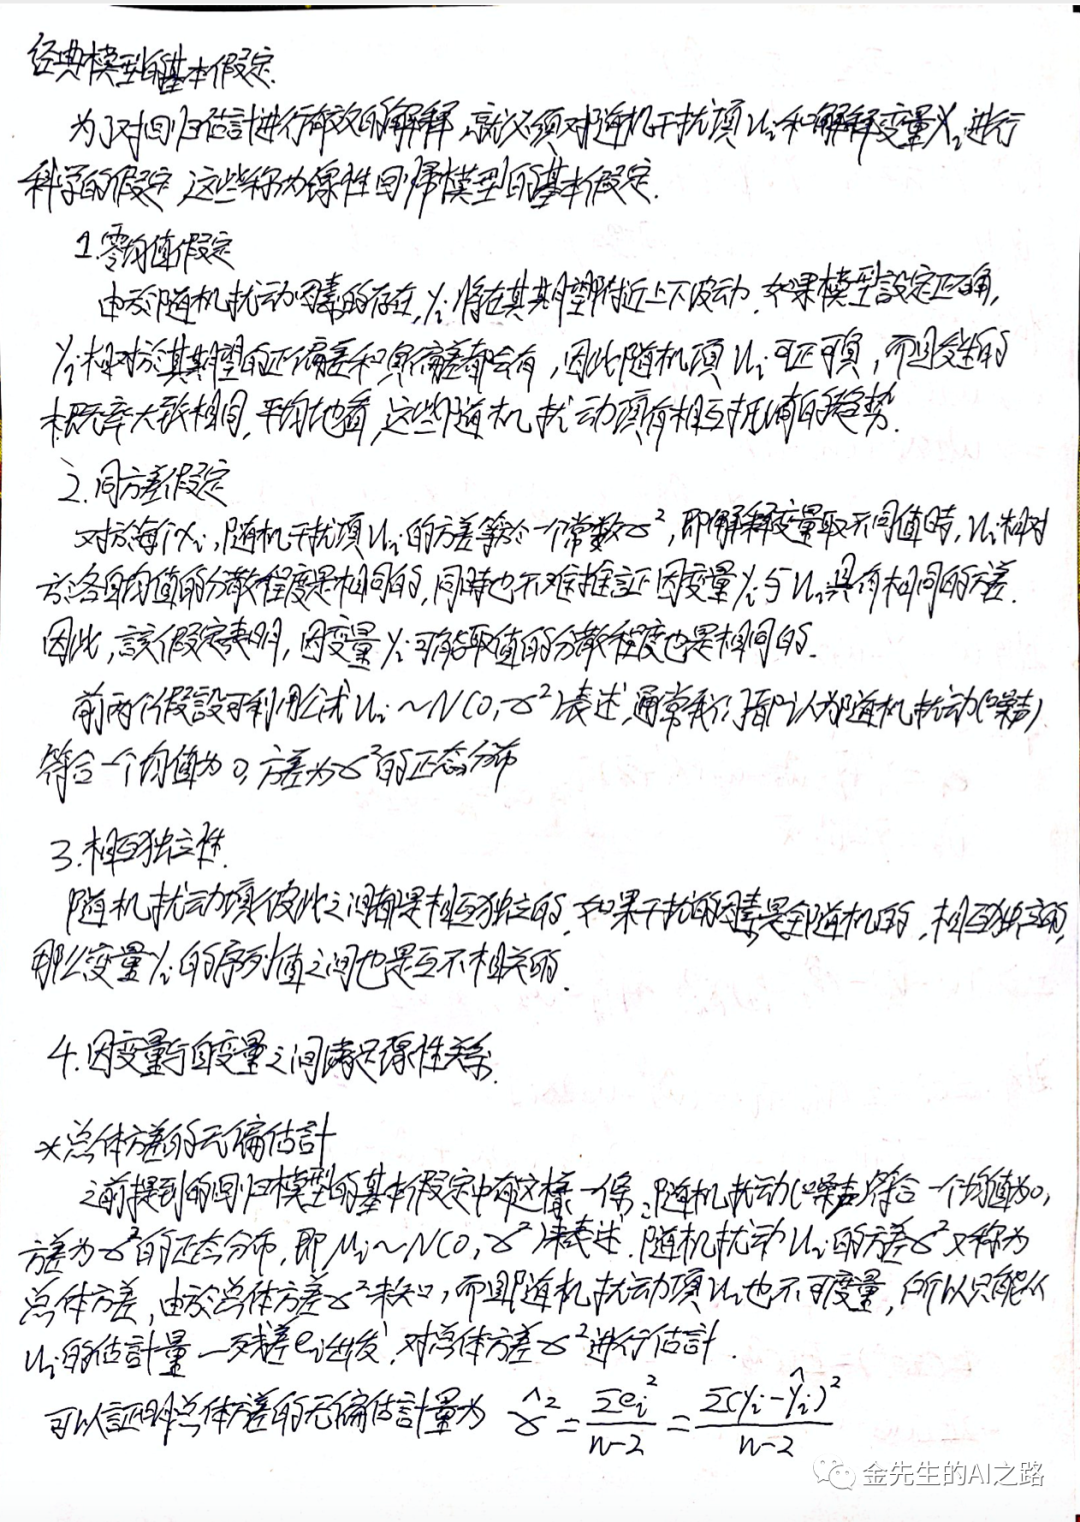 经典模型的基本假定.
为了对回归估計进行有效的解释,就必须对随机干扰項Ui和解释变量Xi进行
科学的假定,这些称为線性回归模型的基本假定.
1.零均值假定
由於随机扰动因素的存在,Yi将在其期望附近上下波动.如果模型設定正确,
Yi相对於其期望的正偏差和負偏差都会有,因此随机項Ui可正可負,而且发生的
概率大致相同,平均地看,这些随机扰动項有相互抵消的趋势.
2.同方差假定
对於每个Xi,随机干扰項Ui的方差等於一个常数σ²,即解释变量取不同值時,Ui相对
於各自均值的分散程度是相同的,同時也不难推証因变量Yi与Ui具有相同的方差.
因此,該假定表明,因变量Yi可能取值的分散程度也是相同的.
前两个假設可利用公式Ui~N(0,σ²)表述,通常我们可以认为随机扰动(噪声)
符合一个均值为0,方差为σ²的正态分布
3.相互独立性.
随机扰动項彼此之间都是相互独立的,如果干扰的因素是全随机的,相互独立的,
那么变量Yi的序列值之间也是互不相关的.
4.因变量与自变量之间满足線性关系.
*总体方差的无偏估計
之前提到的回归模型的基本假定中有这樣一条:随机扰动(噪声)符合一个均值为0,
方差为σ²的正态分布,即μi~N(0,σ²)来表述.随机扰动Ui的方差σ²又称为
总体方差,由於总体方差σ²未知,而且随机扰动項Ui也不可度量,所以只能从
Ui的估計量—残差ei出发,对总体方差σ²进行估計.
可以証明总体方差的无偏估計量为 σ̂²=Σei²/(n-2)=Σ(Yi-Ŷi)²/(n-2)
金先生的AI之路